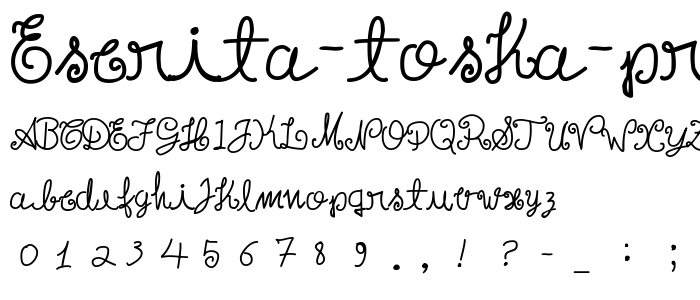 Escrita-toska-pr
ABCDEFGHIJKLMNOPQRSTUVWXYZ
abcdefghijklmnopqrstuvwxyz
0 1 2 3 4 5 6 7 8 9 . , ! ? - _ : ;